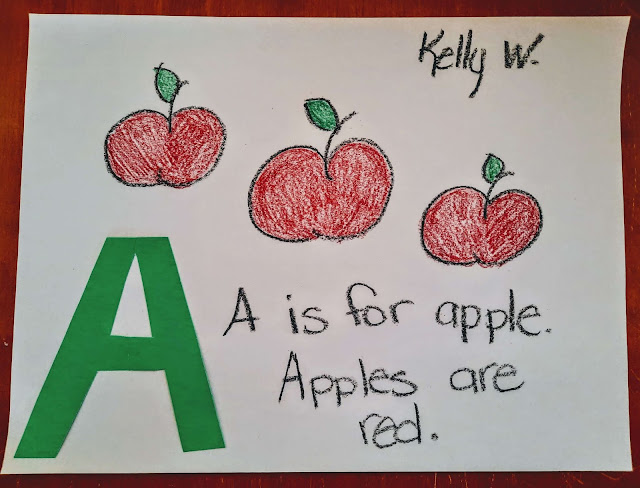 Kelly W.
A
A is for apple.
Apples are
red.